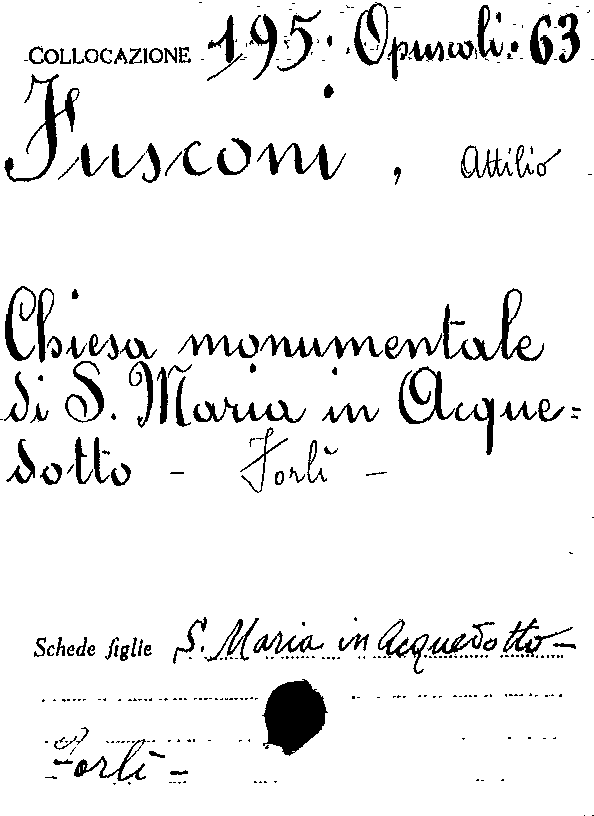 COLLOCAZIONE 195. Opuscoli. 63
Fusconi, Attilio
Chiesa monumentale
di S. Maria in Acque=
dotto - Forlì -
Schede figlie S. Maria in Acquedotto -
Forlì -